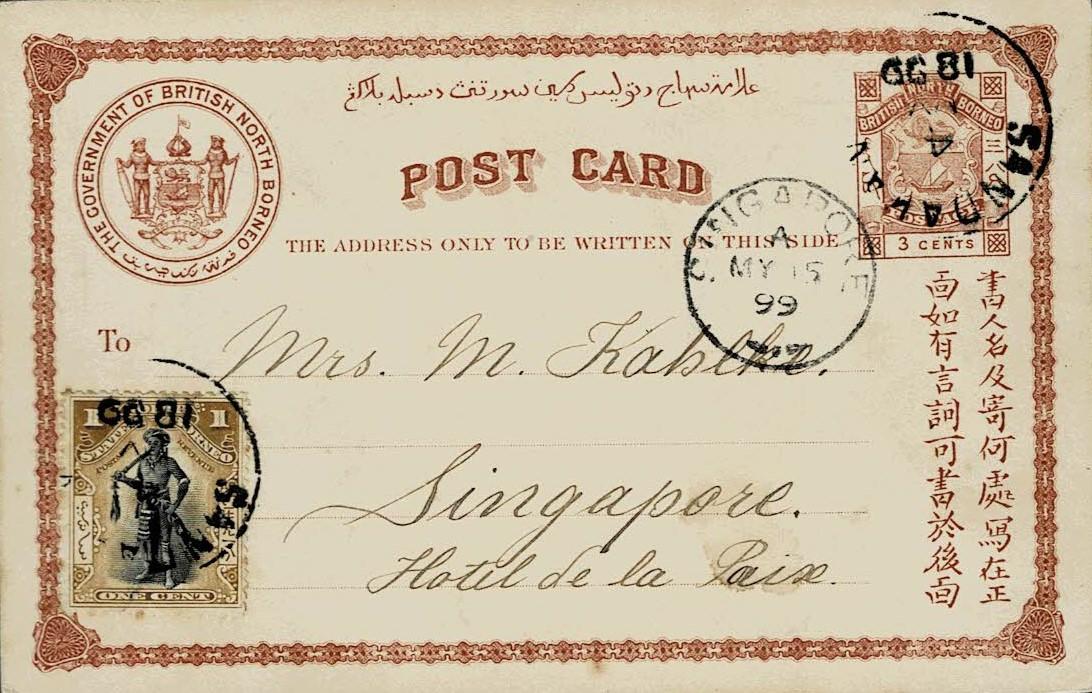 THE GOVERNMENT OF BRITISH NORTH BORNEO
POST CARD
THE ADDRESS ONLY TO BE WRITTEN ON THIS SIDE
BRITISH NORTH BORNEO
POSTAGE
3 CENTS
18 99
SANDAKAN
SINGAPORE
A
MY 15
99
To
Mrs. M. Kahlke.
Singapore.
Hotel de la Paix.
1 1
STATE BORNEO
ONE CENT
書人名及寄何處寫在正
面如有言詞可書於後面